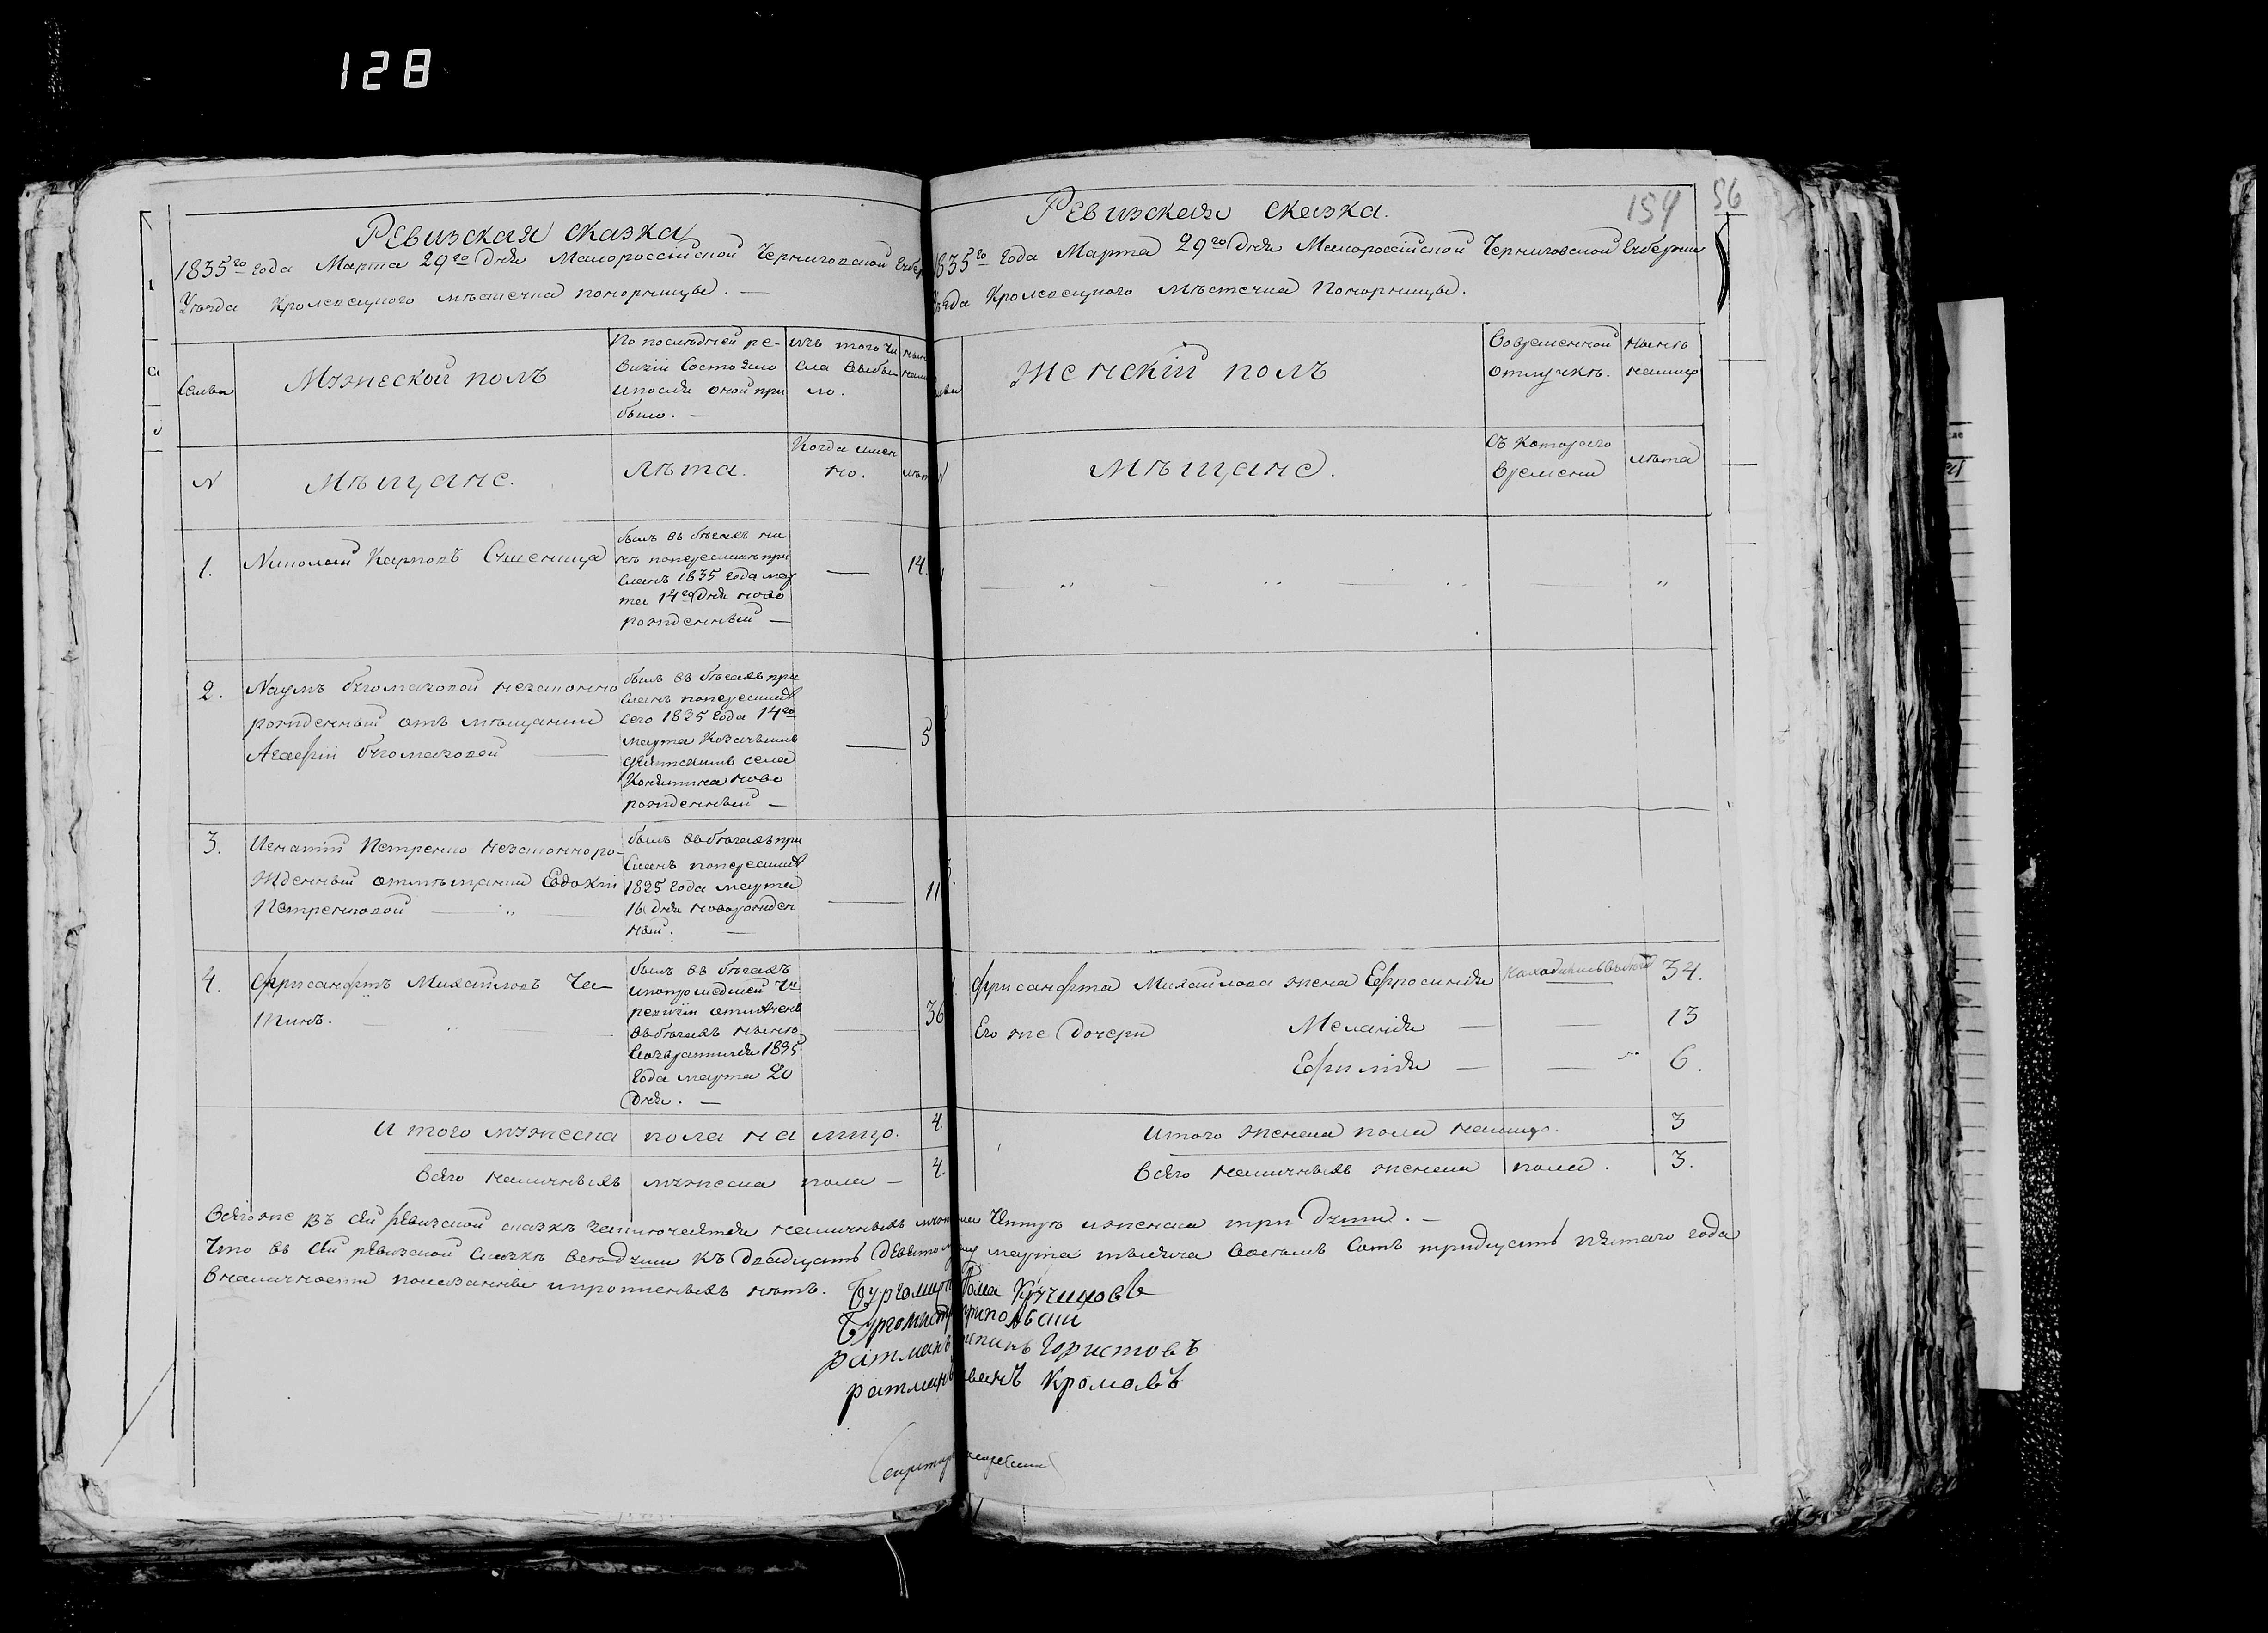 128
Ревизская сказка
1835го года Марта 29го дня Малороссійской Черниговской Губер
Уѣзда Кролевецкого мѣстечка Понорницы. —
Семьи
Мужеской полъ
По послѣдней ре-
визіи Состояло
и послѣ оной при
было. —
изъ того чи
сла выбы
ло.
N
Мѣщане.
Лѣта.
Когда имен
но.
1.
Николай Карповъ
былъ въ бѣгахъ ны
нѣ
сланъ 1835 года мар
та 14го дня ново
рожденный —
—
14.
2.
Наумъ незаконно
рожденный отъ мѣщанки
Агафіи
былъ въ бѣгахъ при
сланъ
сего 1835 года 14го
марта
села
ново
рожденный —
—
5
3.
Игнатій Петренко незаконно ро-
жденный отъ мѣщанки Евдокіи
Петренковой —
былъ въ бѣгахъ при
сланъ
1835 года марта
16 дня новорожден
ный. —
—
11
4.
Хрисанфъ Михайловъ Ча
пинъ.
былъ въ бѣгахъ
и по прошедшей 7й
ревизіи отмѣченъ
въ бѣгахъ нынѣ
возвратился 1835
года марта 20
дня. —
—
36
Итого мужеска пола на лицо. 4.
Всего наличныхъ мужеска пола — 4.
Ревизская сказка.
154
56
1835го года Марта 29го дня Малороссійской Черниговской Губерніи
Уѣзда Кролевецкого Мѣстечка Понорницы.
Женскій полъ
Во временной
отлучкѣ.
нынѣ
налицо
Мѣщане.
Съ котораго
времени
лѣта
Хрисанфа Михайлова жена Ефросинія
находилась въ бѣгахъ
34.
Его же дочери Меланія — — 13
Ефимія — — 6.
Итого женска пола налицо. 3
Всего наличныхъ женска пола. 3.
Всего же въ сей ревизской сказкѣ заключается наличныхъ четыре и женска три души. —
Что въ сей ревизской сказкѣ всѣ души къ двадцать девятому марта тысяча восемь сотъ тридцать пятаго года
в наличности показанны и прописныхъ нѣтъ. Бургомистр Фома
Бургомистр
ратманъ Христовъ
ратманъ Иванъ Кромовъ